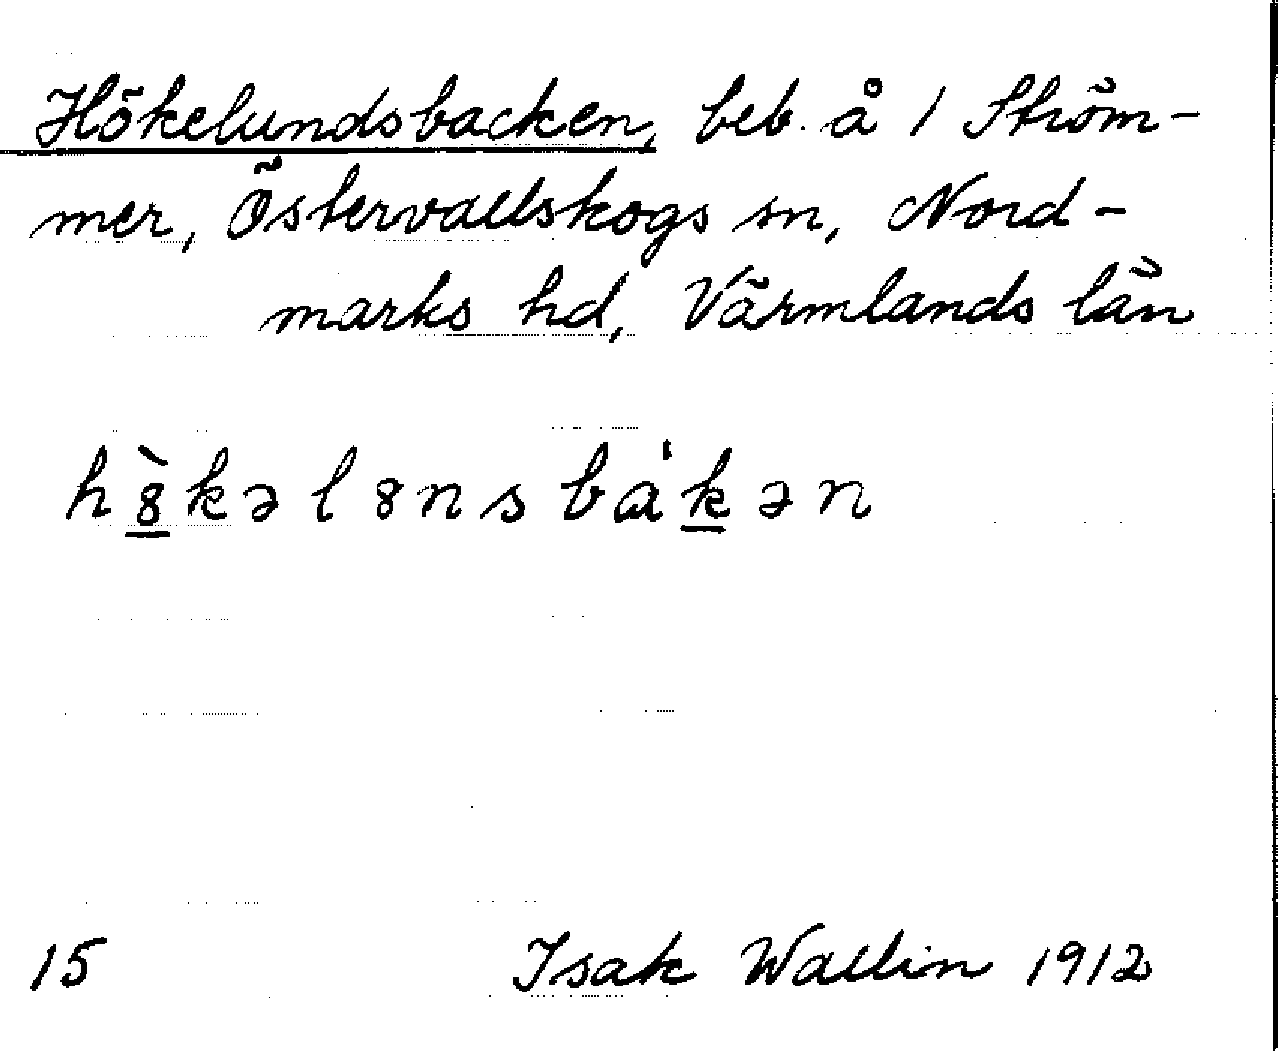 Hökelundsbacken, beb. å 1 Ström-
mer, Östervallskogs sn, Nord-
marks hd, Värmlands län
h8̱̀kəl8nsbàˈḵən
15 Isak Wallin 1912